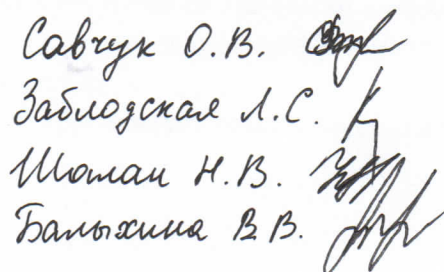 Савчук О.В.
Заблодская Л.С.
Шалан Н.В.
Балыхина В.В.